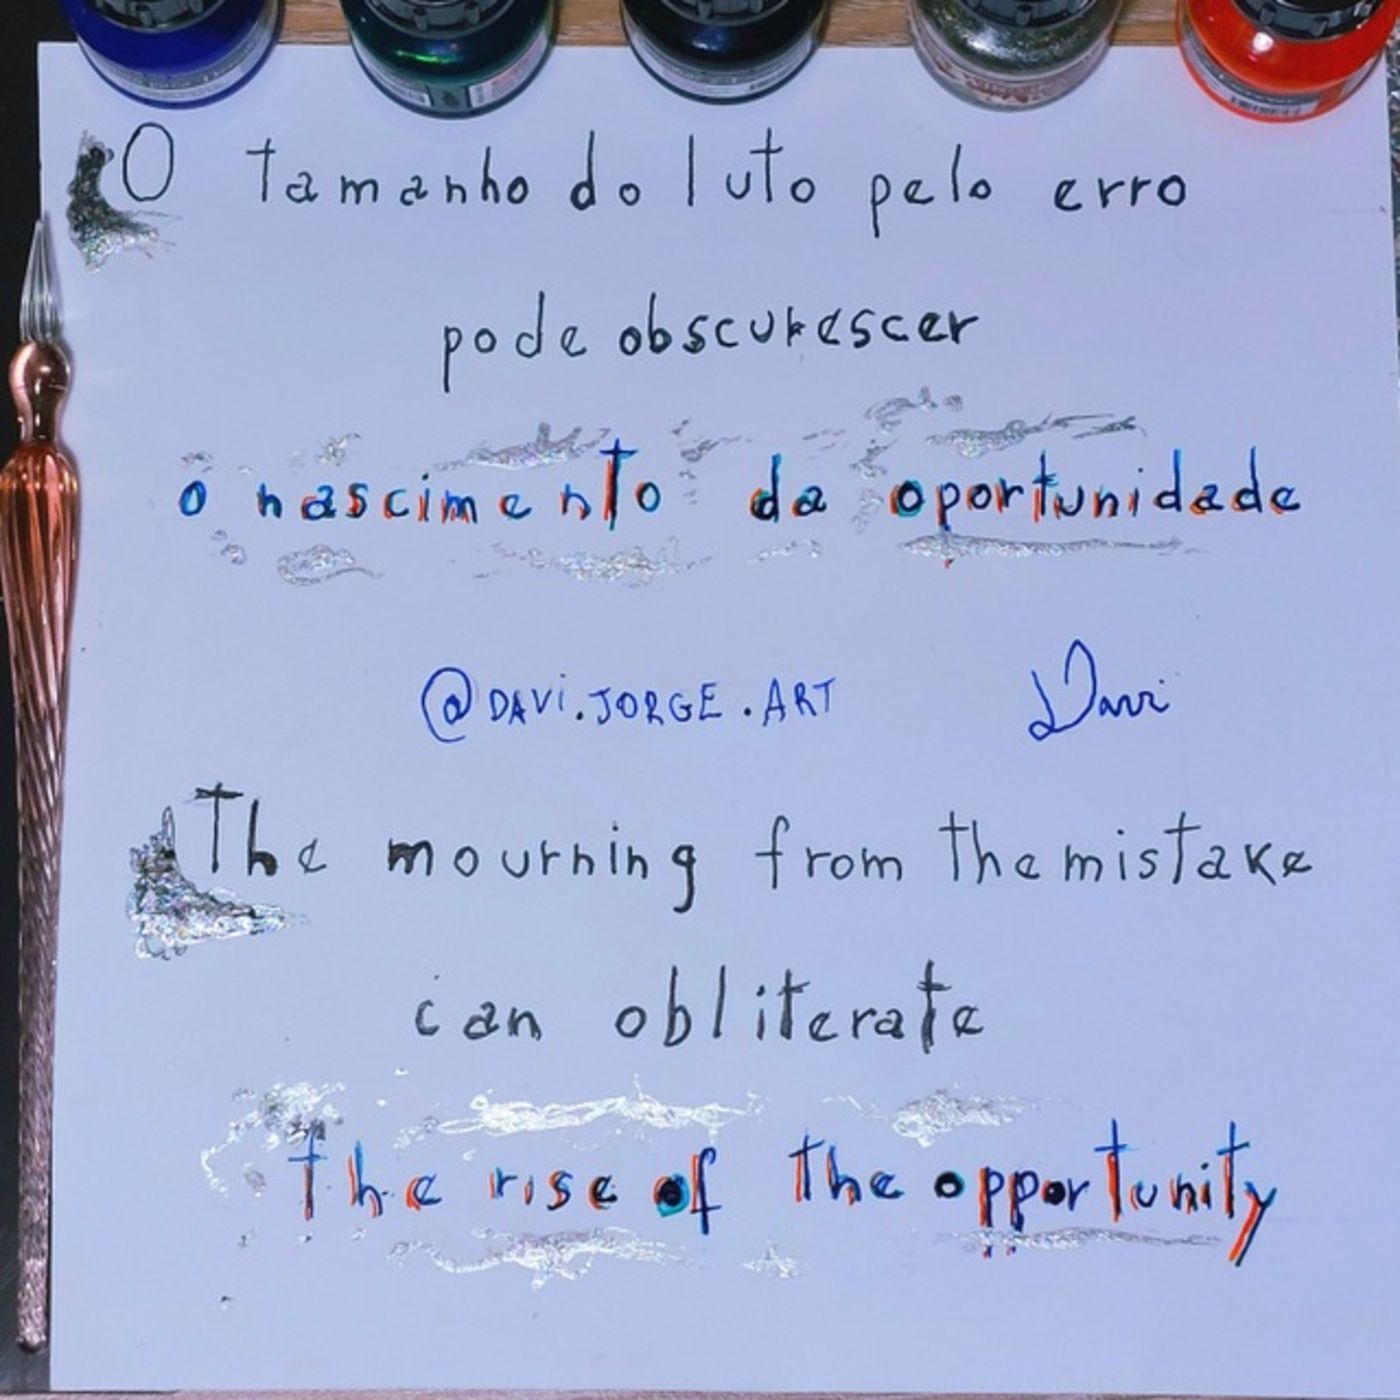 O tamanho do luto pelo erro
pode obscurescer
o nascimento da oportunidade
@DAVi.JORGE.ART Davi
The mourning from the mistake
can obliterate
the rise of the opportunity